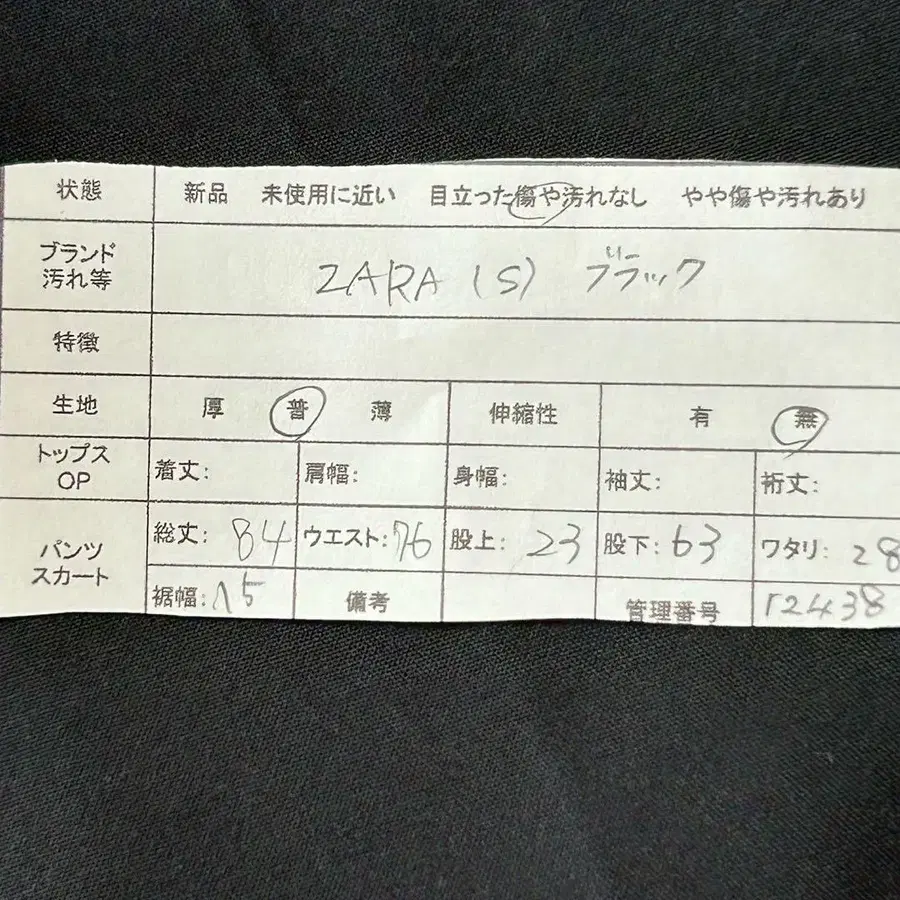 状態 新品 未使用に近い 目立った傷や汚れなし やや傷や汚れあり
ブランド
汚れ等 ZARA (S) ブラック
特徴
生地 厚 普 薄 伸縮性 有 無
トップス
OP 着丈: 肩幅: 身幅: 袖丈: 裄丈:
パンツ
スカート 総丈: 84 ウエスト: 76 股上: 23 股下: 63 ワタリ: 28
裾幅: 15 備考 管理番号 12438